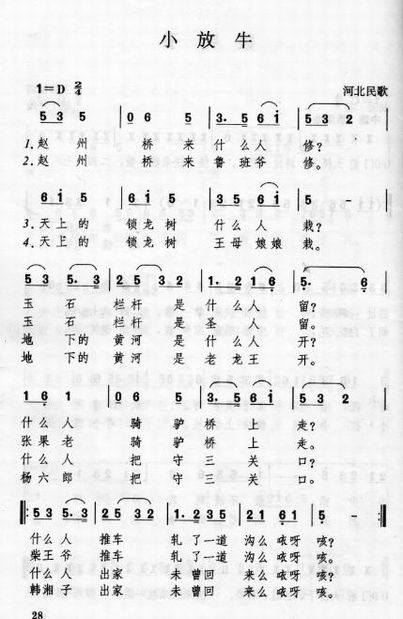 小放牛
1=D 2/4
河北民歌
5 3 5 | 6 1 5 | 3. 5 6 1 | 5 3 2 |
1.赵州桥来什么人修?
2.赵州桥来鲁班爷修。
6 1 5 | 6 1 5 | 3. 5 6 1 | 5 - |
3.天上的锁龙树什么人栽?
4.天上的锁龙树王母娘娘栽。
5 3. 5. 3 | 2 5 3 2 | 1. 2 1 6 | 5. 6 |
玉石栏杆是什么人留?
玉石栏杆是圣人留。
地下的黄河是什么人开?
地下的黄河是老龙王开。
1 6. | 1 2 3 | 1. 2 1 6 | 5 - |
什么人骑驴桥上走?
张果老骑驴桥上走。
什么人把守三关口?
杨六郎把守三关口。
5 3 5. 3 | 2 5 3 2 | 1. 2 3 5 | 2 1 6 1 | 5 -
什么人推车轧了一道沟么咴呀咳?
柴王爷推车轧了一道沟么咴呀咳。
什么人出家未曾回来么咴呀咳?
韩湘子出家未曾回来么咴呀咳。
28